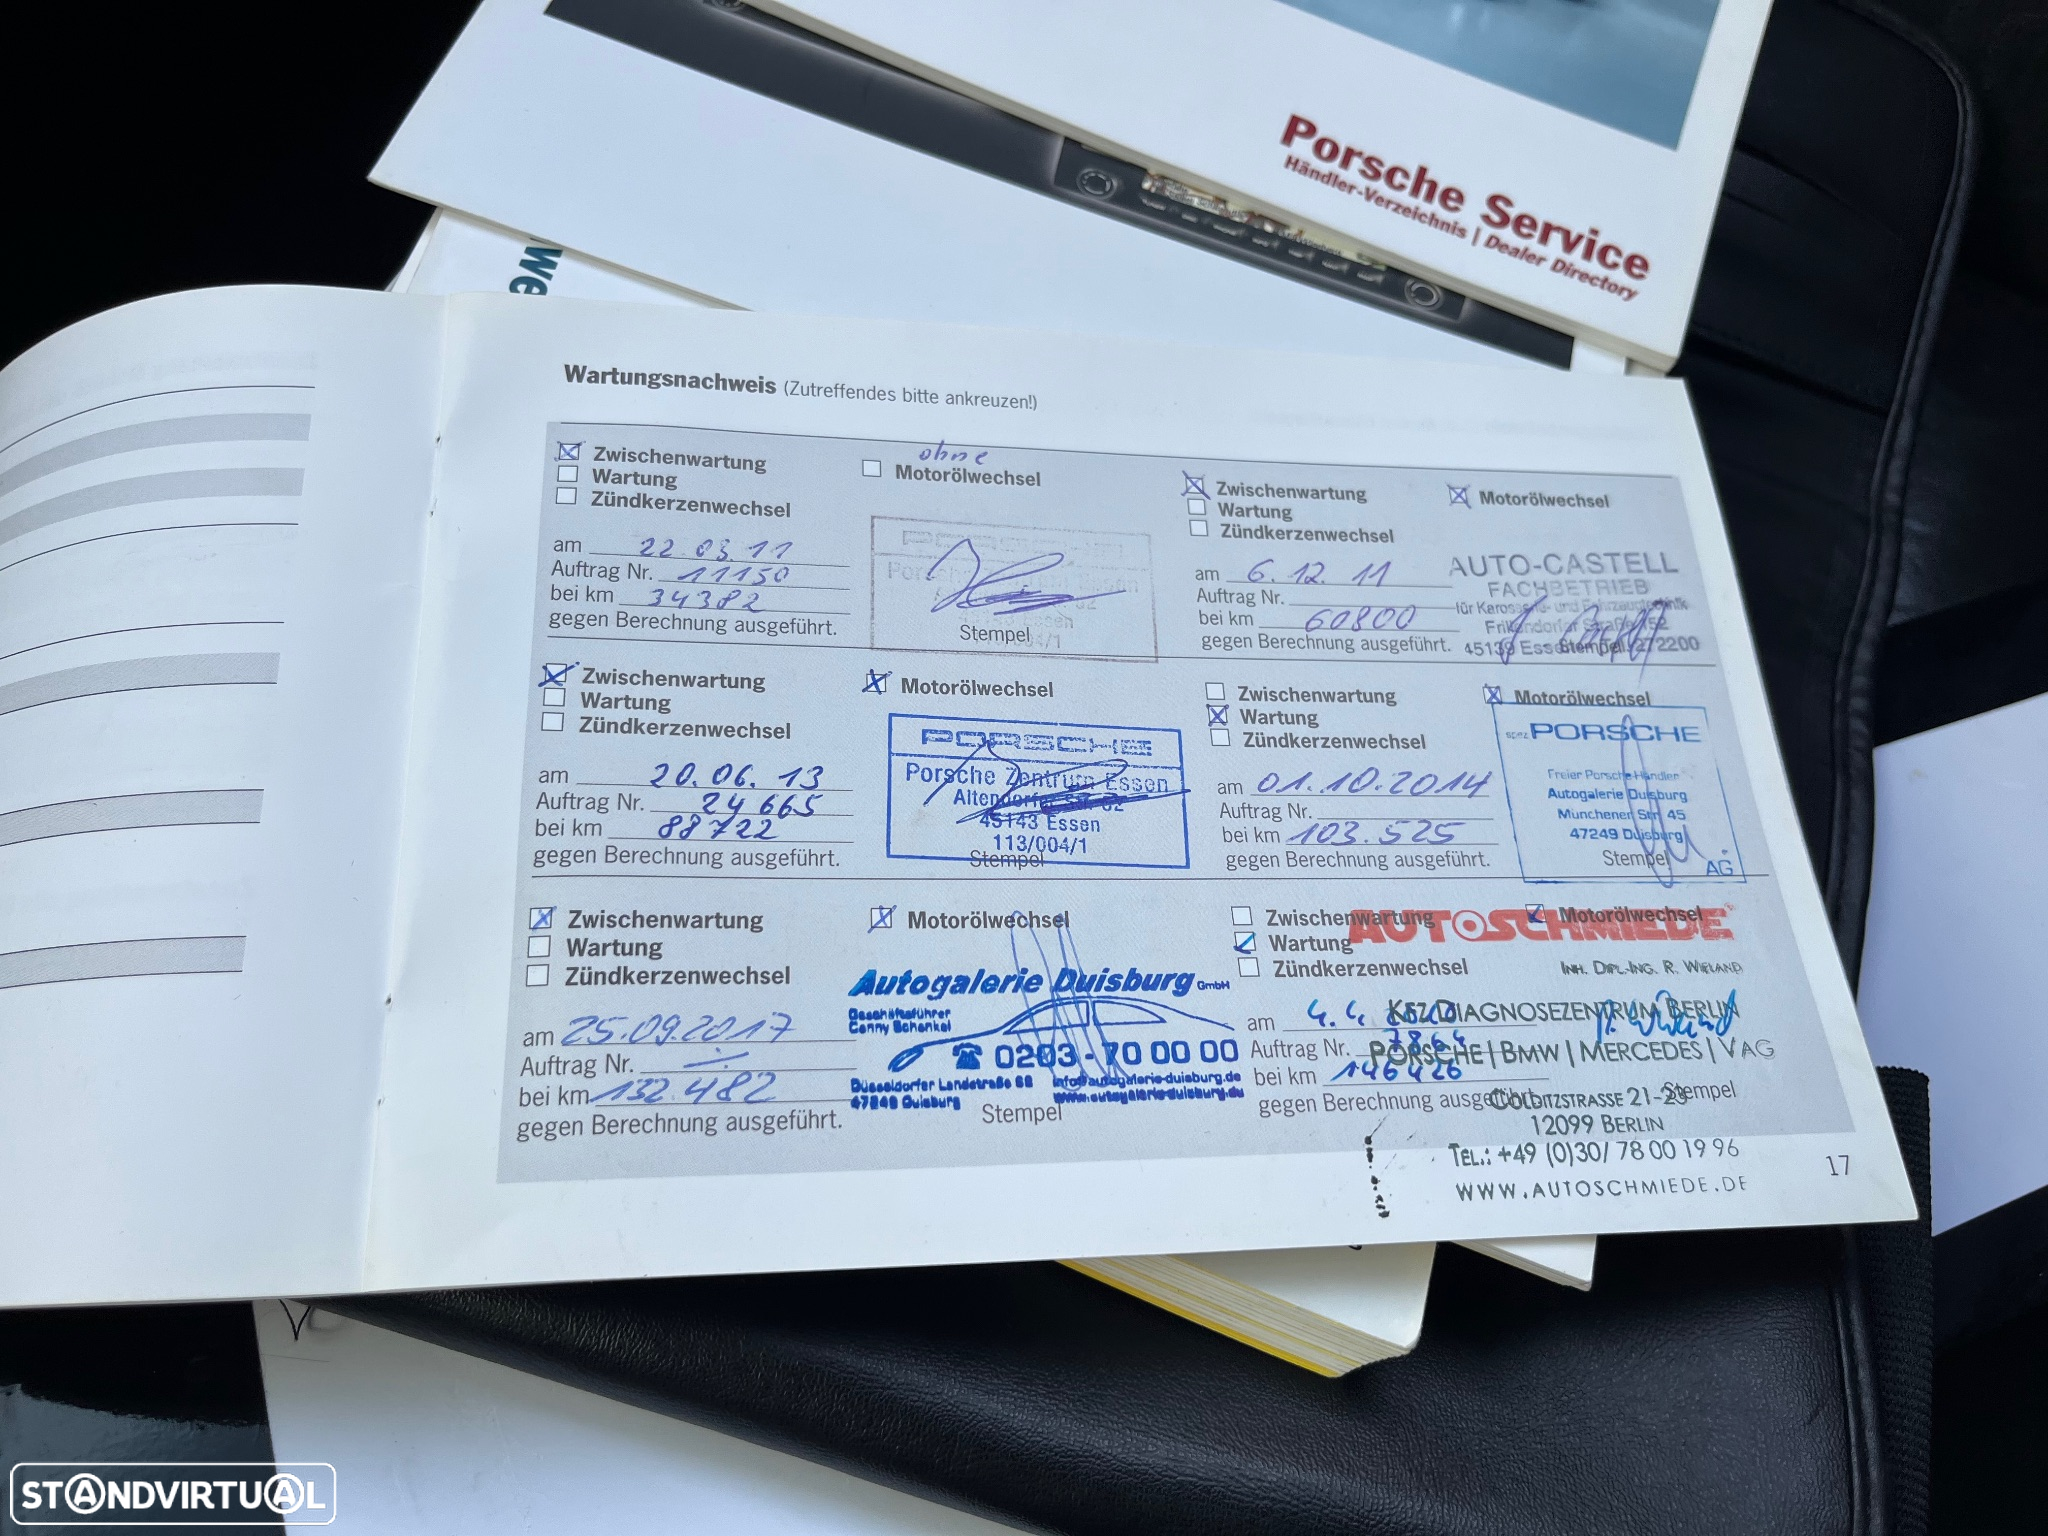 Porsche Service
Händler-Verzeichnis | Dealer Directory
we
Wartungsnachweis (Zutreffendes bitte ankreuzen!)
Zwischenwartung
Wartung
Zündkerzenwechsel
ohne
Motorölwechsel
am 22.03.11
Auftrag Nr. 11150
bei km 34382
gegen Berechnung ausgeführt.
Stempel
Zwischenwartung
Wartung
Zündkerzenwechsel
Motorölwechsel
am 6.12.11
Auftrag Nr.
bei km 60800
gegen Berechnung ausgeführt.
AUTO-CASTELL
FACHBETRIEB
45139 Essen
Stempel
Zwischenwartung
Wartung
Zündkerzenwechsel
Motorölwechsel
am 20.06.13
Auftrag Nr. 24665
bei km 88722
gegen Berechnung ausgeführt.
PORSCHE
Porsche Zentrum Essen
Altendorfer Str.
45143 Essen
113/004/1
Stempel
Zwischenwartung
Wartung
Zündkerzenwechsel
Motorölwechsel
am 01.10.2014
Auftrag Nr.
bei km 103.525
gegen Berechnung ausgeführt.
PORSCHE
Freier Porsche-Händler
Autogalerie Duisburg
Münchener Str. 45
47249 Duisburg
Stempel
AG
Zwischenwartung
Wartung
Zündkerzenwechsel
Motorölwechsel
am 25.09.2017
Auftrag Nr.
bei km 132.482
gegen Berechnung ausgeführt.
Autogalerie Duisburg GmbH
Geschäftsführer
Conny Schenkel
0203 - 70 00 00
Düsseldorfer Landstraße 68
47249 Duisburg
info@autogalerie-duisburg.de
www.autogalerie-duisburg.de
Stempel
Zwischenwartung
Wartung
Zündkerzenwechsel
Motorölwechsel
am 4.4.
Auftrag Nr. 7864
bei km 146426
gegen Berechnung ausgeführt.
AUTOSCHMIEDE
INH. DIPL.-ING. R. WIELAND
KFZ DIAGNOSEZENTRUM BERLIN
PORSCHE | BMW | MERCEDES | VAG
COLDITZSTRASSE 21-23
Stempel
12099 BERLIN
TEL.: +49 (0)30/ 78 00 19 96
WWW.AUTOSCHMIEDE.DE
17
STANDVIRTUAL